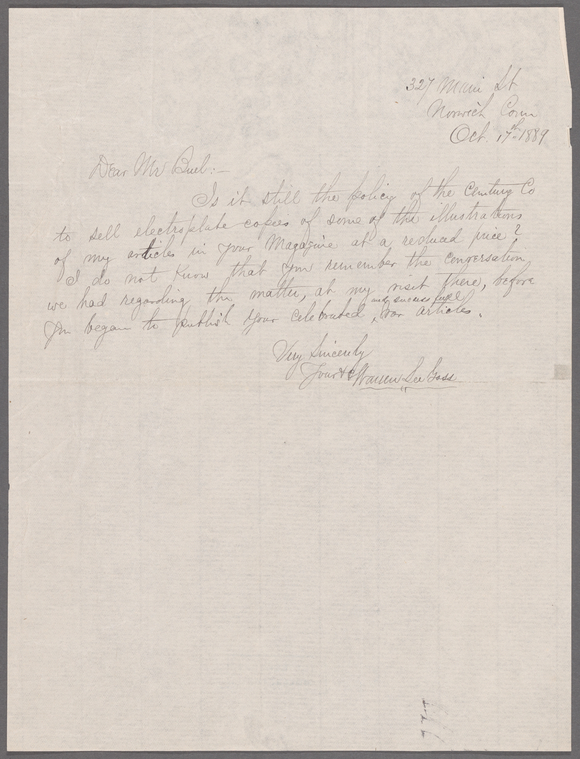 327 Main St
Norwich Conn
Oct. 17th 1889
Dear Mr Buel:—
Is it still the policy of the Century Co
to sell electroplate copies of some of the illustrations
of my articles in your Magazine at a reduced price?
I do not know that you remember the conversation,
we had regarding the matter, at my visit there, before
and successfull
you began to publish your celebrated, war articles.
Very Sincerely
Yours &c Warren Lee Goss